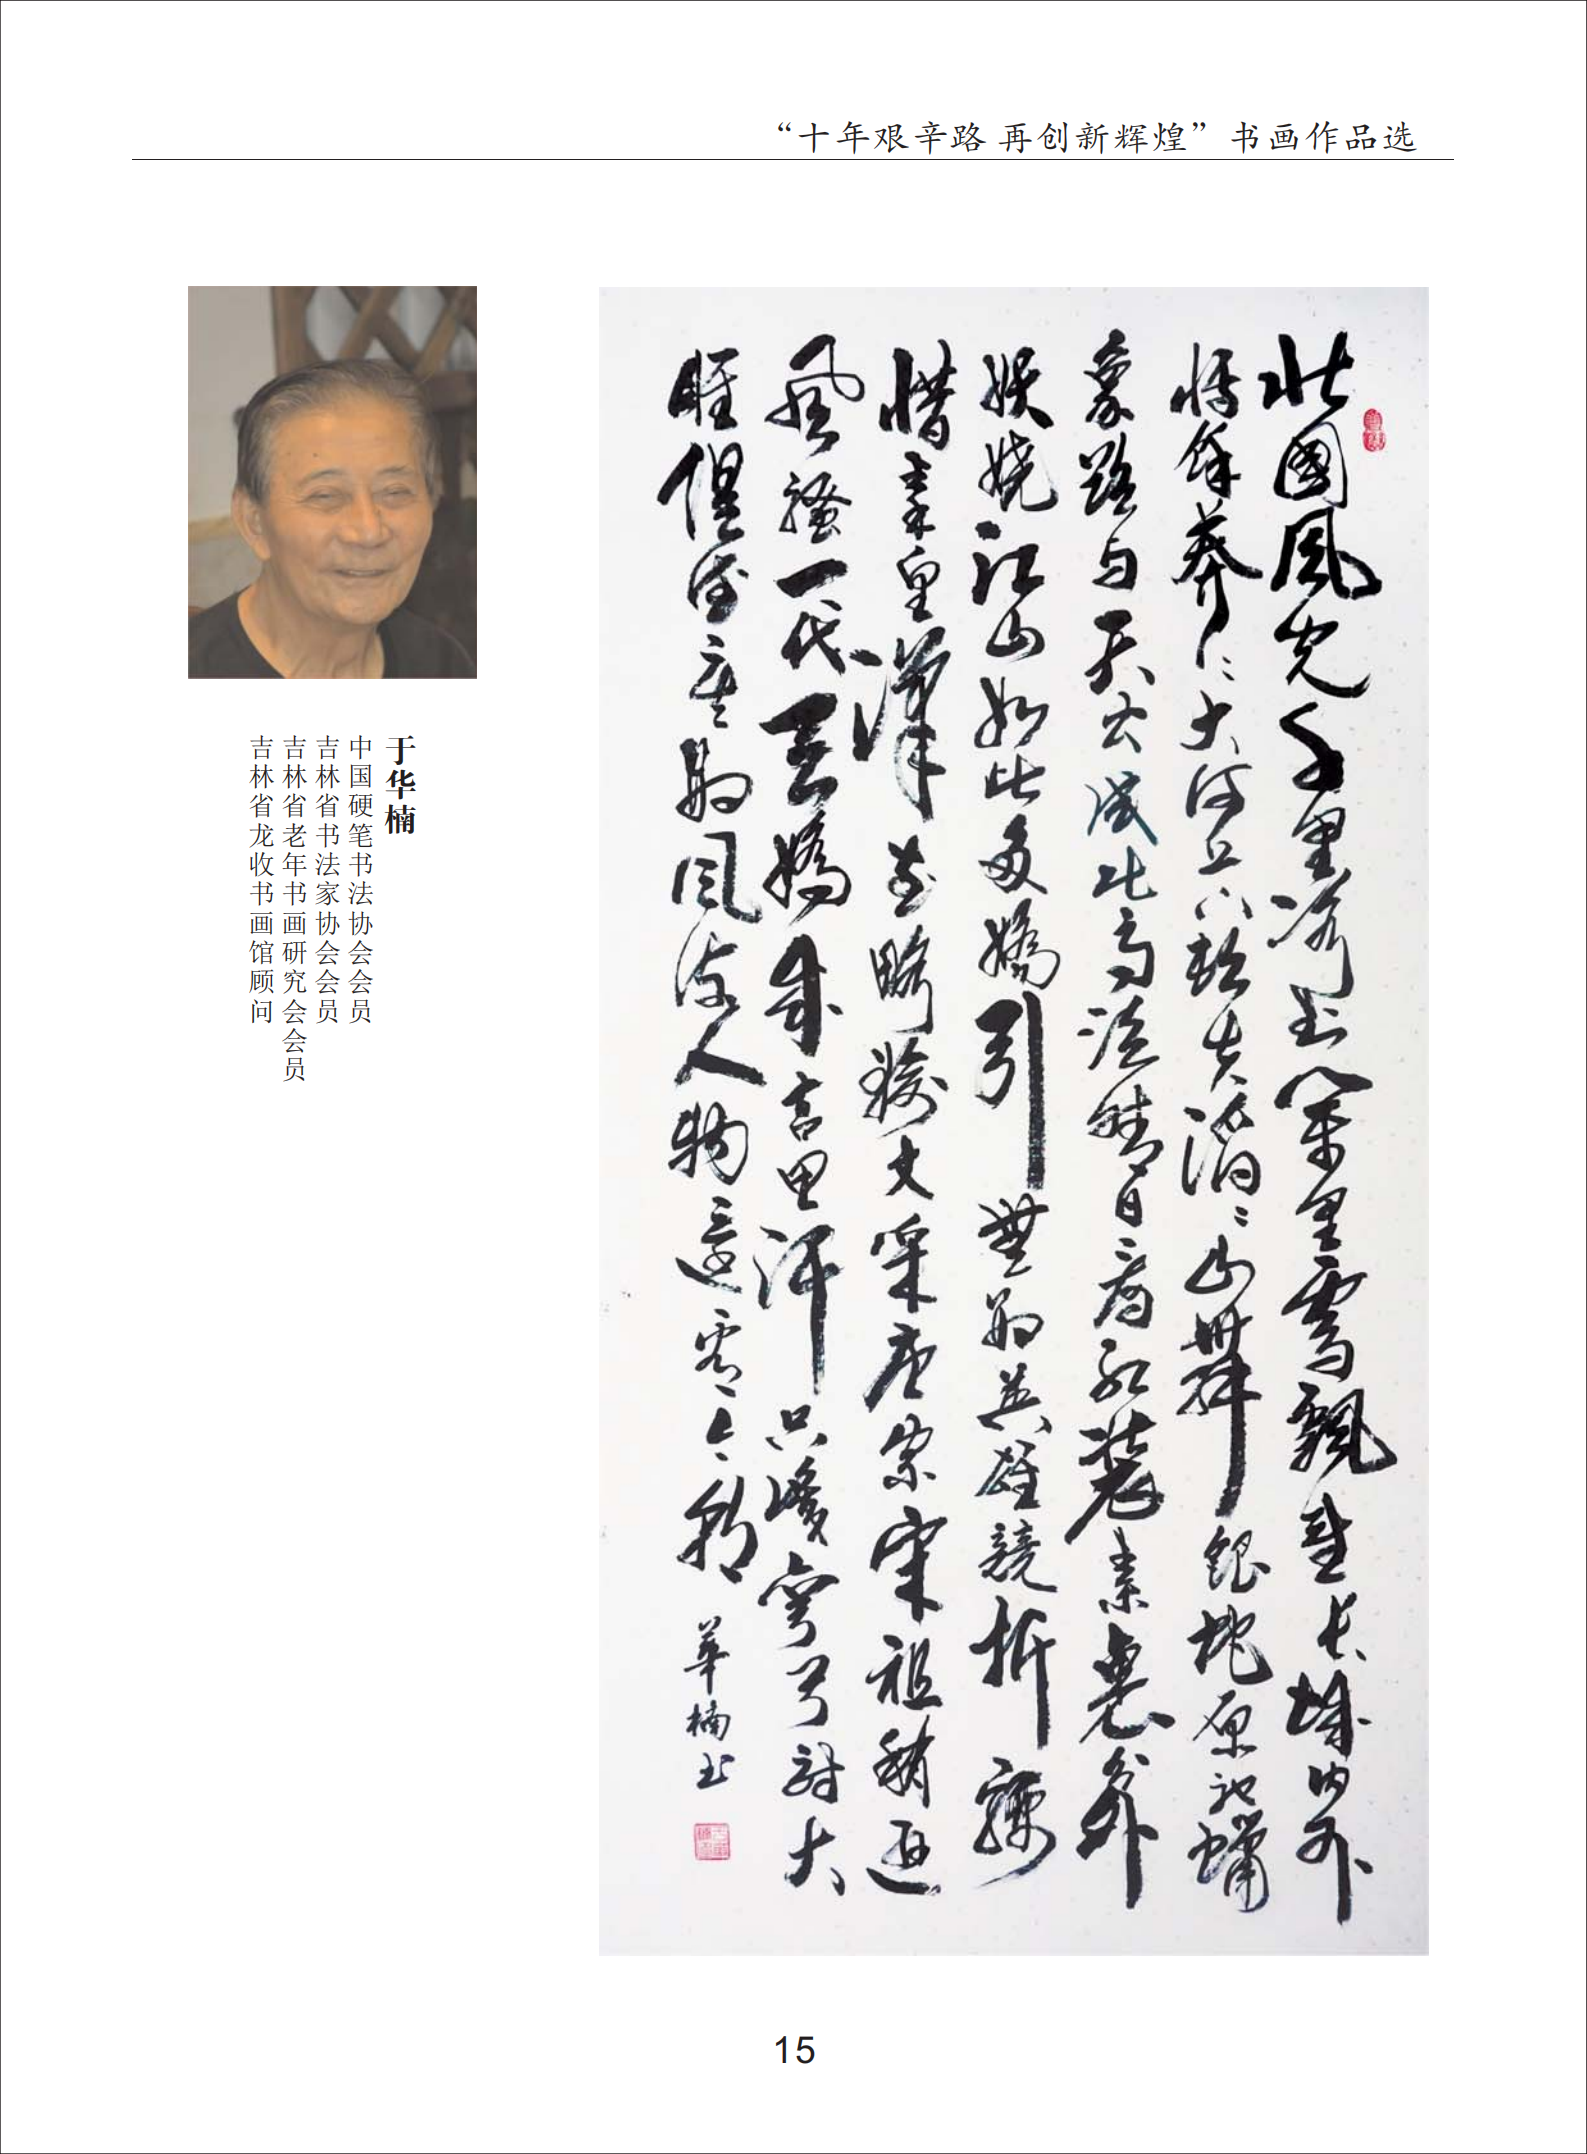 “十年艰辛路 再创新辉煌”书画作品选
于华楠
中国硬笔书法协会会员
吉林省书法家协会会员
吉林省老年书画研究会会员
吉林省龙收书画馆顾问
北國風光千里冰封萬里雪飄望長城内外
惟餘莽〻大河上下頓失滔〻山舞銀蛇原馳蠟
象欲与天公試比高須晴日看紅裝素裹分外
妖嬈江山如此多嬌引無數英雄競折腰
惜秦皇漢武略輸文采唐宗宋祖稍遜
風騷一代天嬌成吉思汗只識彎弓射大
雕俱往矣數風流人物還看今朝 華楠书
15